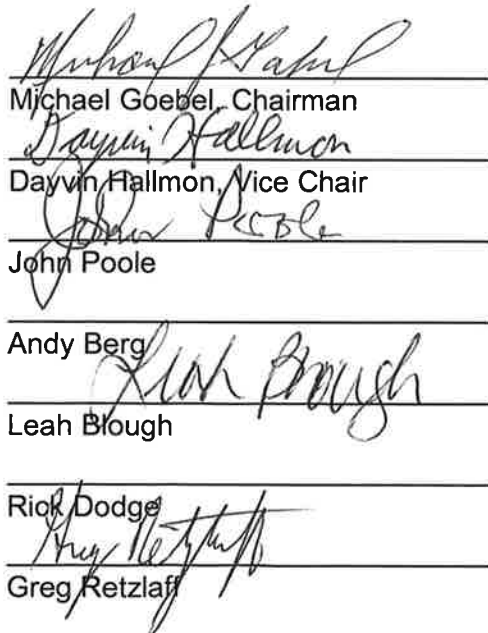 Michael J. Goebel
Michael Goebel, Chairman
Dayvin Hallmon
Dayvin Hallmon, Vice Chair
John Poole
John Poole
Andy Berg
Leah Blough
Leah Blough
Rick Dodge
Greg Retzlaff
Greg Retzlaff